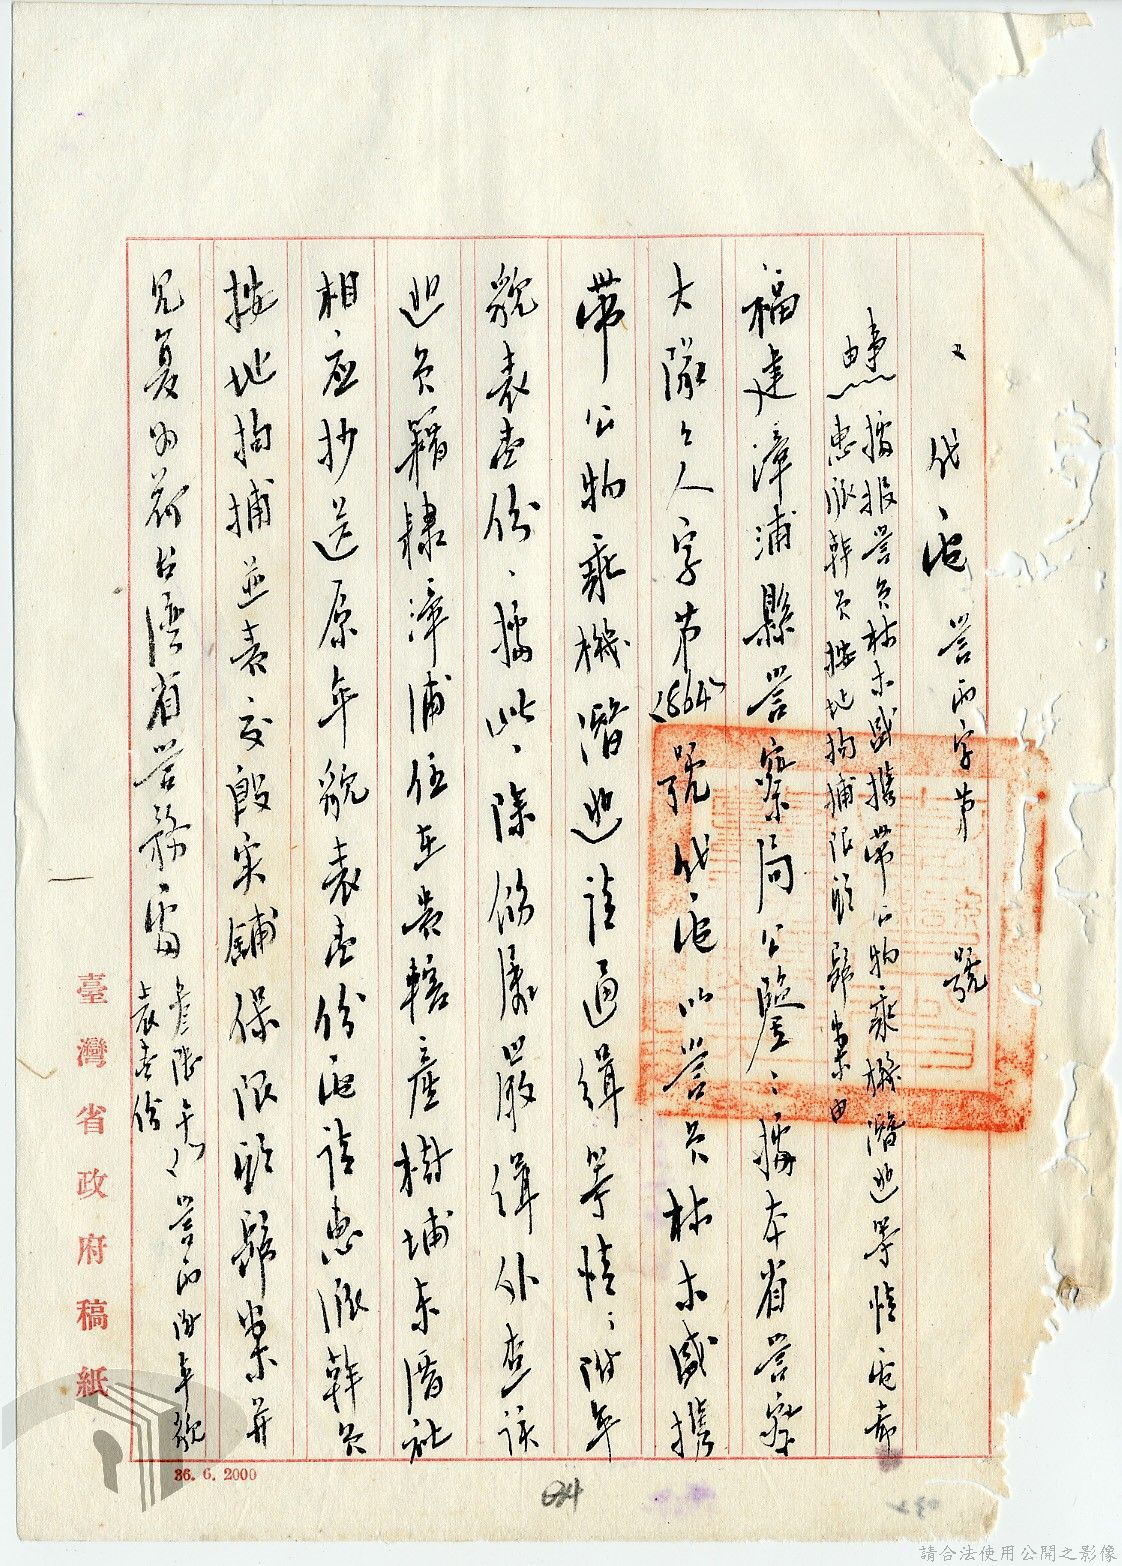 代電 警丙字第 號
事由
據報警員林木盛携帶公物乘機潛逃等情電希
惠派幹員按地拘捕限政歸案由
福建漳浦縣警察局公鑒：據本省警察
大隊人字第1664號代電以警員林木盛携
帶公物乘機潛逃請通緝等情：附年
貌表壹份、據此、除飭屬嚴緝外查該
逃員籍隸漳浦住在貴轄産樹埔東厝社
相应抄送原年貌表壹份電請惠派幹員
按地拘捕逃員交殷实鋪保限歸案并
見复為荷台湾省警務處 警丙附年貌
表壹份
臺灣省政府稿紙
36. 6. 2000
請合法使用公開之影像